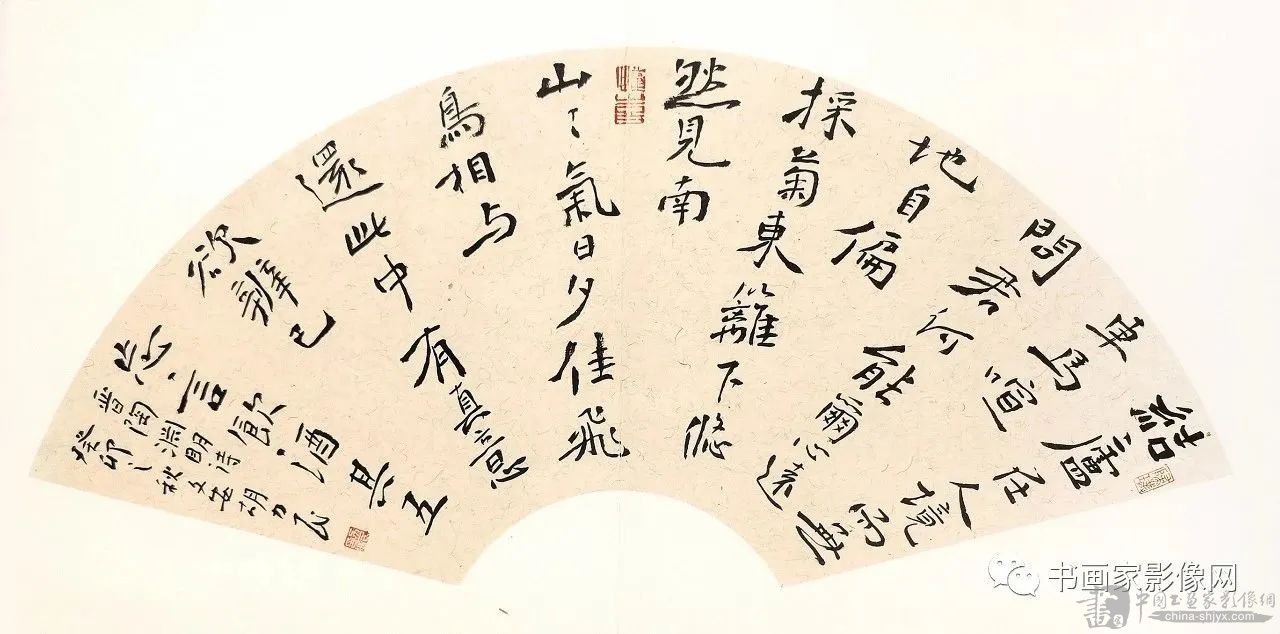 結廬在人境而無
車馬喧
問君何能爾心遠
地自偏
採菊東籬下悠
然見南
山〻氣日夕佳飛
鳥相与
還此中有真意
欲辨已
忘言飲酒其五
晉陶淵明詩
癸卯之秋文安胡力民
书画家影像网
中国书画家影像網
china-shjyx.com